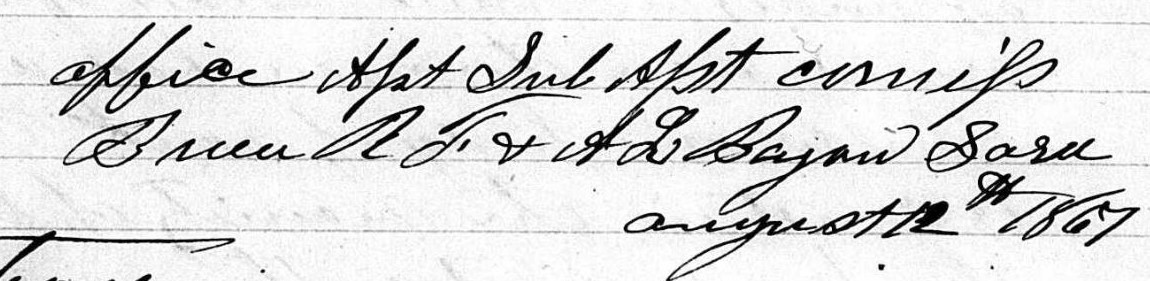 office Asst Sub Asst comiss
Bureu R F & A L Bayou Sara
august 12th 1867